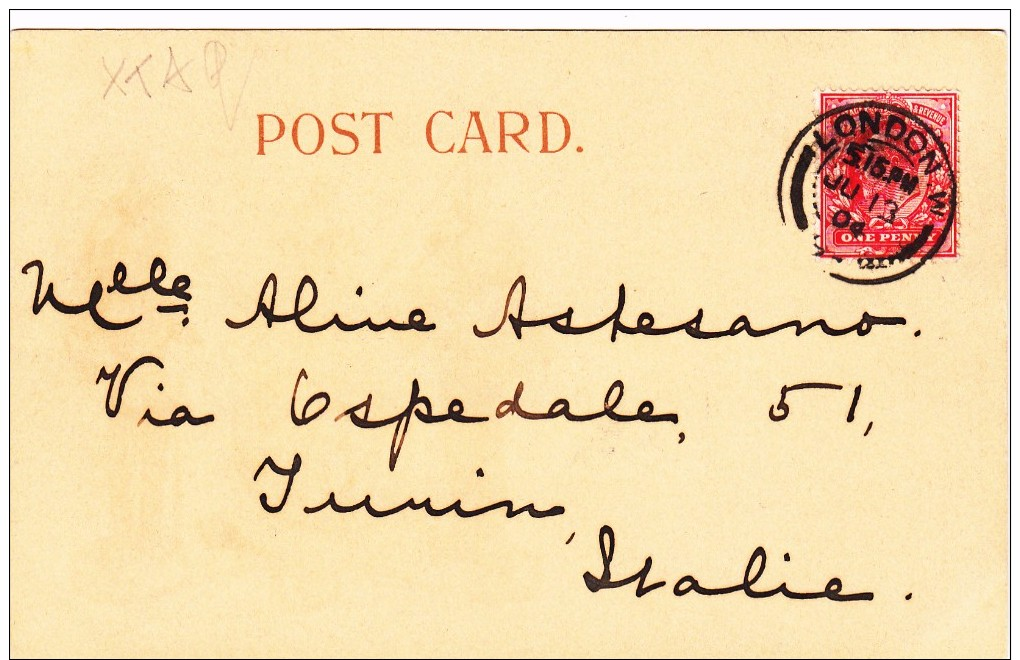 XTAQ
POST CARD.
& REVENUE
LONDON W
5.15 PM
JU 13
04
ONE PENNY
Mlle Aline Astesano.
Via Ospedale, 51,
Turin,
Italie.